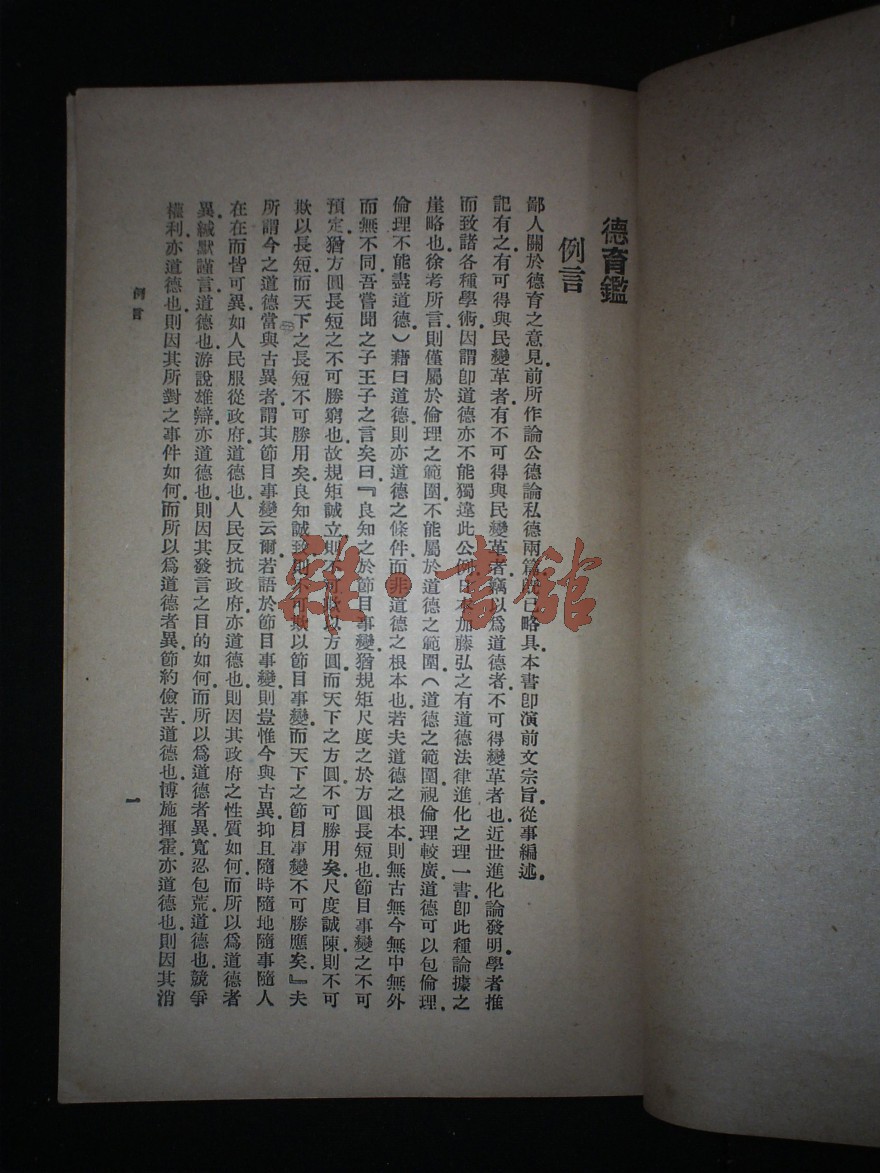 德育鑑
例言
鄙人關於德育之意見前所作論公德論私德兩篇既已略具本書卽演前文宗旨從事編述
記有之有可得與民變革者有不可得與民變革者竊以爲道德者不可得變革者也近世進化論發明學者推
而致諸各種學術因謂卽道德亦不能獨違此公例日本加藤弘之有道德法律進化之理一書卽此種論據之
崖略也徐考所言則僅屬於倫理之範圍不能屬於道德之範圍（道德之範圍視倫理較廣道德可以包倫理
倫理不能盡道德）藉曰道德則亦道德之條件而非道德之根本也若夫道德之根本則無古無今無中無外
而無不同吾嘗聞之子王子之言矣曰『良知之於節目事變猶規矩尺度之於方圓長短也節目事變之不可
預定猶方圓長短之不可勝窮也故規矩誠立則不可欺以方圓而天下之方圓不可勝用矣尺度誠陳則不可
欺以長短而天下之長短不可勝用矣良知誠致則不可欺以節目事變而天下之節目事變不可勝應矣』夫
所謂今之道德當與古異者謂其節目事變云爾若語於節目事變則豈惟今與古異抑且隨時隨地隨事隨人
在在而皆可異如人民服從政府道德也人民反抗政府亦道德也則因其政府之性質如何而所以爲道德者
異緘默謹言道德也游說雄辯亦道德也則因其發言之目的如何而所以爲道德者異寬忍包荒道德也競爭
權利亦道德也則因其所對之事件如何而所以爲道德者異節約儉苦道德也博施揮霍亦道德也則因其消
例言
一
雜·書館